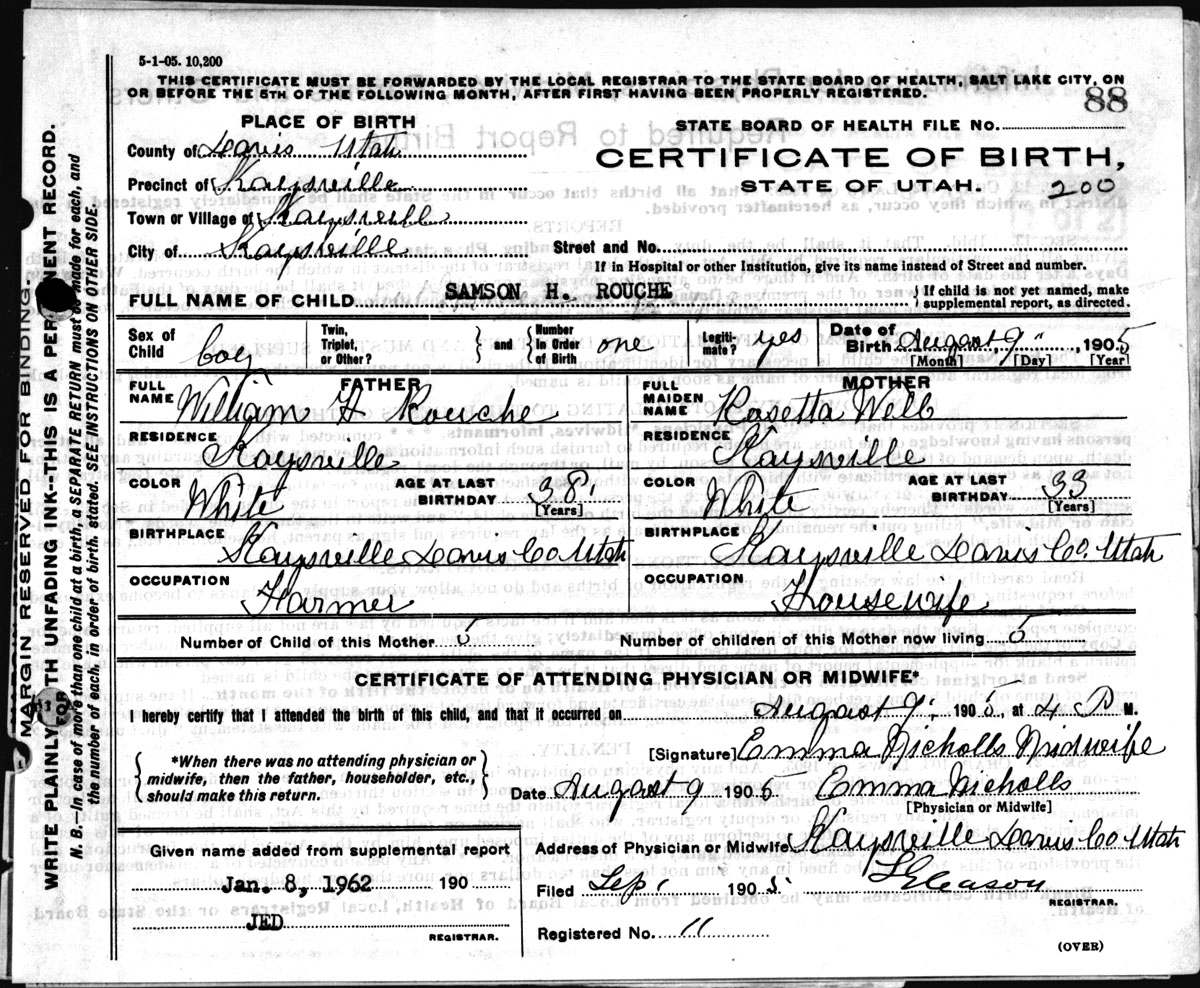 5-1-05. 10,200
THIS CERTIFICATE MUST BE FORWARDED BY THE LOCAL REGISTRAR TO THE STATE BOARD OF HEALTH, SALT LAKE CITY, ON
OR BEFORE THE 5TH OF THE FOLLOWING MONTH, AFTER FIRST HAVING BEEN PROPERLY REGISTERED.
88
PLACE OF BIRTH
STATE BOARD OF HEALTH FILE NO.
County of Davis Utah
CERTIFICATE OF BIRTH,
Precinct of Kaysville
STATE OF UTAH. 200
Town or Village of Kaysville
City of Kaysville
Street and No.
If in Hospital or other Institution, give its name instead of Street and number.
FULL NAME OF CHILD SAMSON H. ROUCHE
} If child is not yet named, make supplemental report, as directed.
Sex of Child boy
Twin, Triplet, or Other? } and { Number in Order of Birth one
Legiti- mate? yes
Date of Birth August 9, 1905
[Month] [Day] [Year]
FATHER
FULL NAME William H Rouche
RESIDENCE Kaysville
COLOR White
AGE AT LAST BIRTHDAY 38
[Years]
BIRTHPLACE Kaysville Davis Co Utah
OCCUPATION Farmer
MOTHER
FULL MAIDEN NAME Rosetta Webb
RESIDENCE Kaysville
COLOR White
AGE AT LAST BIRTHDAY 33
[Years]
BIRTHPLACE Kaysville Davis Co. Utah
OCCUPATION Housewife
Number of Child of this Mother 5
Number of children of this Mother now living 5
CERTIFICATE OF ATTENDING PHYSICIAN OR MIDWIFE*
I hereby certify that I attended the birth of this child, and that it occurred on August 9, 1905, at 4 P M.
*When there was no attending physician or
midwife, then the father, householder, etc.,
should make this return.
[Signature] Emma Nicholls Midwife
Date August 9 1905 Emma Nicholls
[Physician or Midwife]
Given name added from supplemental report
Jan. 8, 1962 190
JED
REGISTRAR.
Address of Physician or Midwife Kaysville Davis Co Utah
Filed Sep 1 1905. Gleason
REGISTRAR.
Registered No. 11
(OVER)
MARGIN RESERVED FOR BINDING.
WRITE PLAINLY WITH UNFADING INK--THIS IS A PERMANENT RECORD.
N. B.—In case of more than one child at a birth, a SEPARATE RETURN must be made for each, and
the number of each, in order of birth, stated. SEE INSTRUCTIONS ON OTHER SIDE.